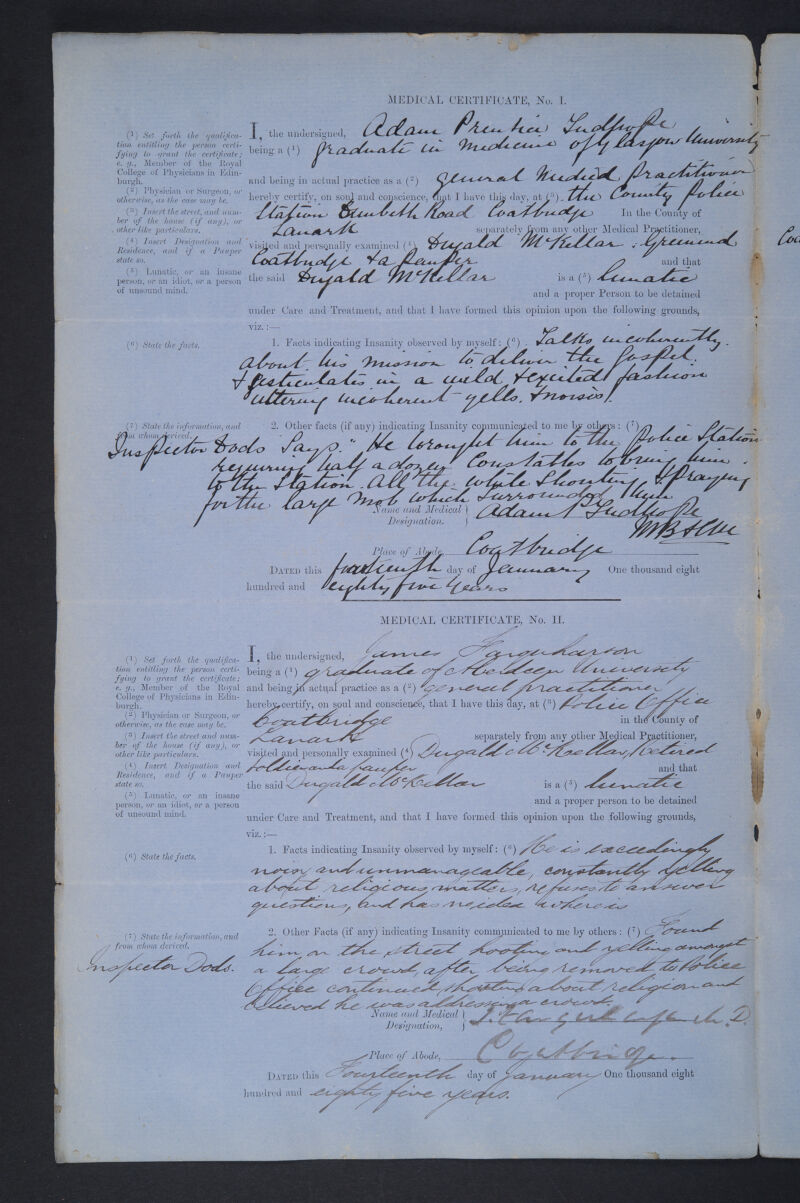 MEDICAL CERTIFICATE, No. I.
I, the undersigned, Adam Prentice Ludhope
being a (1) graduate in medicine of Glasgow University
and being in actual practice as a (2) general Medical Practitioner
hereby certify, on soul and conscience, that I have this day, at (3) the County Police
Station Dunbeth Road Coatbridge In the County of
Lanark separately from any other Medical Practitioner,
visited and personally examined (4) Dugald McKellar
Coatbridge & a Pauper and that
the said Dugald McKellar is a (5) lunatic
and a proper Person to be detained
under Care and Treatment, and that I have formed this opinion upon the following grounds,
viz.:—
(1) Set forth the qualifica-
tion entitling the person certi-
fying to grant the certificate;
e. g., Member of the Royal
College of Physicians in Edin-
burgh.
(2) Physician or Surgeon, or
otherwise, as the case may be.
(3) Insert the street, and num-
ber of the house (if any), or
other like particulars.
(4) Insert Designation and
Residence, and if a Pauper
state so.
(5) Lunatic, or an insane
person, or an idiot, or a person
of unsound mind.
(6) State the facts.
1. Facts indicating Insanity observed by myself: (6) Talks incoherently
about his mission to deliver the Gospel.
& gesticulates in a wild & excited fashion
uttering incoherent yells & noises.
(7) State the information, and
from whom derived.
2. Other facts (if any) indicating Insanity communicated to me by others: (7)
Inspector Dods Says "He brought him to the Police Station
requiring half a dozen Constables to bring him
to the Station. All the while Shouting & Praying
for the large mob which Surrounded him
Name and Medical Designation. Adam P Ludhope
Place of Abode, Coatbridge
DATED this fourteenth day of January One thousand eight
hundred and eighty five years
MEDICAL CERTIFICATE, No. II.
I, the undersigned, James Farquharson
being a (1) graduate of Aberdeen University
and being in actual practice as a (2) general practitioner
hereby certify, on soul and conscience, that I have this day, at (3) Police Office
Coatbridge in the County of
Lanark separately from any other Medical Practitioner,
visited and personally examined (4) Dugald McKellar, Retired
Soldier and a pauper and that
the said Dugald McKellar is a (5) lunatic
and a proper person to be detained
under Care and Treatment, and that I have formed this opinion upon the following grounds,
viz.:—
(1) Set forth the qualifica-
tion entitling the person certi-
fying to grant the certificate;
e. g., Member of the Royal
College of Physicians in Edin-
burgh.
(2) Physician or Surgeon, or
otherwise, as the case may be.
(3) Insert the street and num-
ber of the house (if any), or
other like particulars.
(4) Insert Designation and
Residence, and if a Pauper
state so.
(5) Lunatic, or an insane
person, or an idiot, or a person
of unsound mind.
(6) State the facts.
1. Facts indicating Insanity observed by myself: (6) He is exceedingly
noisy and unmanageable, constantly yelling
about religious matters, refuses to answer
questions, and has no idea where is
(7) State the information, and
from whom derived.
2. Other Facts (if any) indicating Insanity communicated to me by others: (7) Found
Inspector Dods.
him on the street hooting and yelling amongst
a large crowd, after being removed to Police
Office continued shouting about religion and
believed he was addressing a crowd.
Name and Medical Designation, J. Farquharson M.D.
Place of Abode, Coatbridge.
DATED this Fourteenth day of January One thousand eight
hundred and eighty five years.